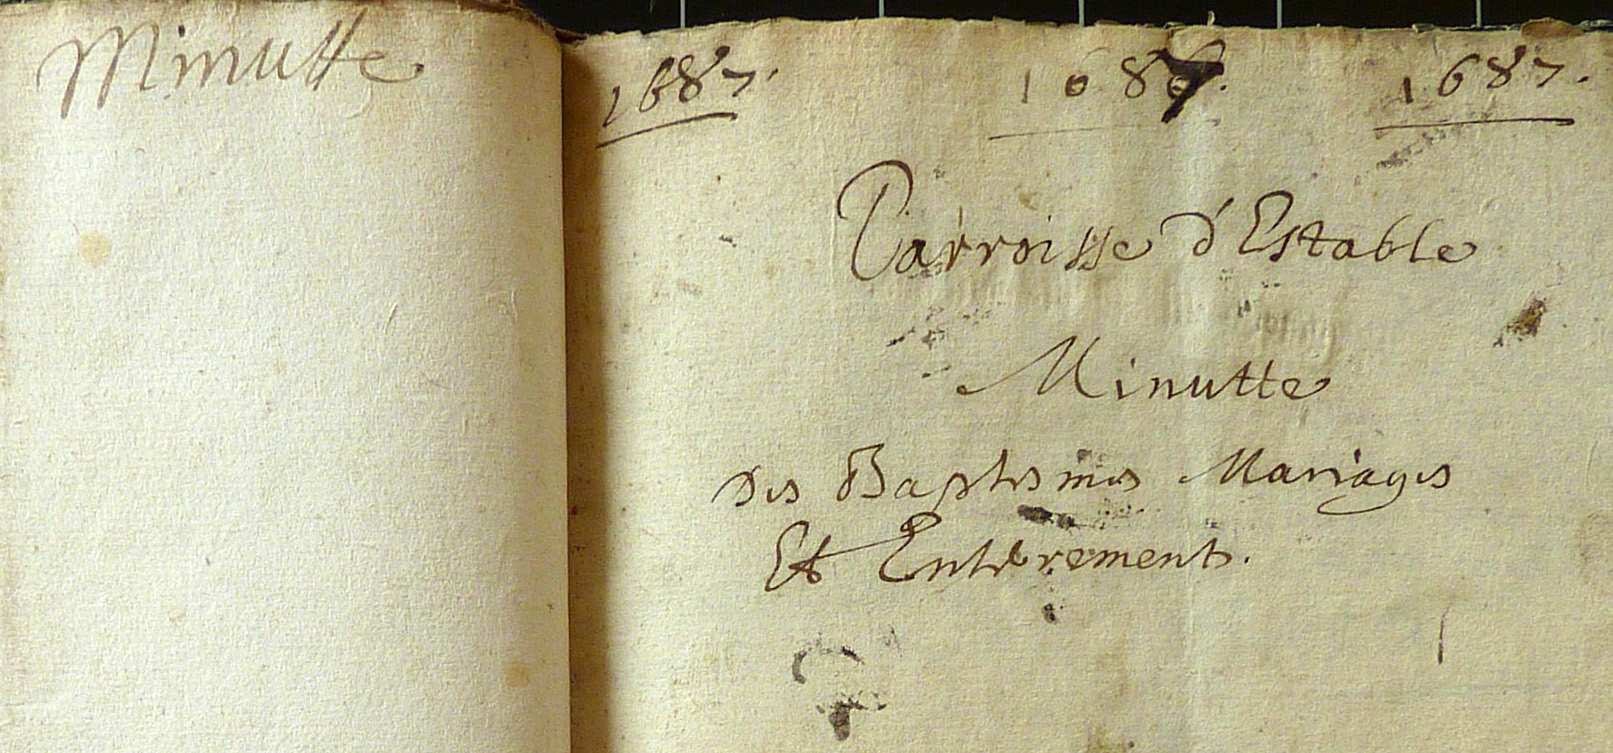 Minutte
1687. 1687. 1687.
Parroisse d'Estable
Minutte
Des Baptesmes Mariages
Et Enterrements.